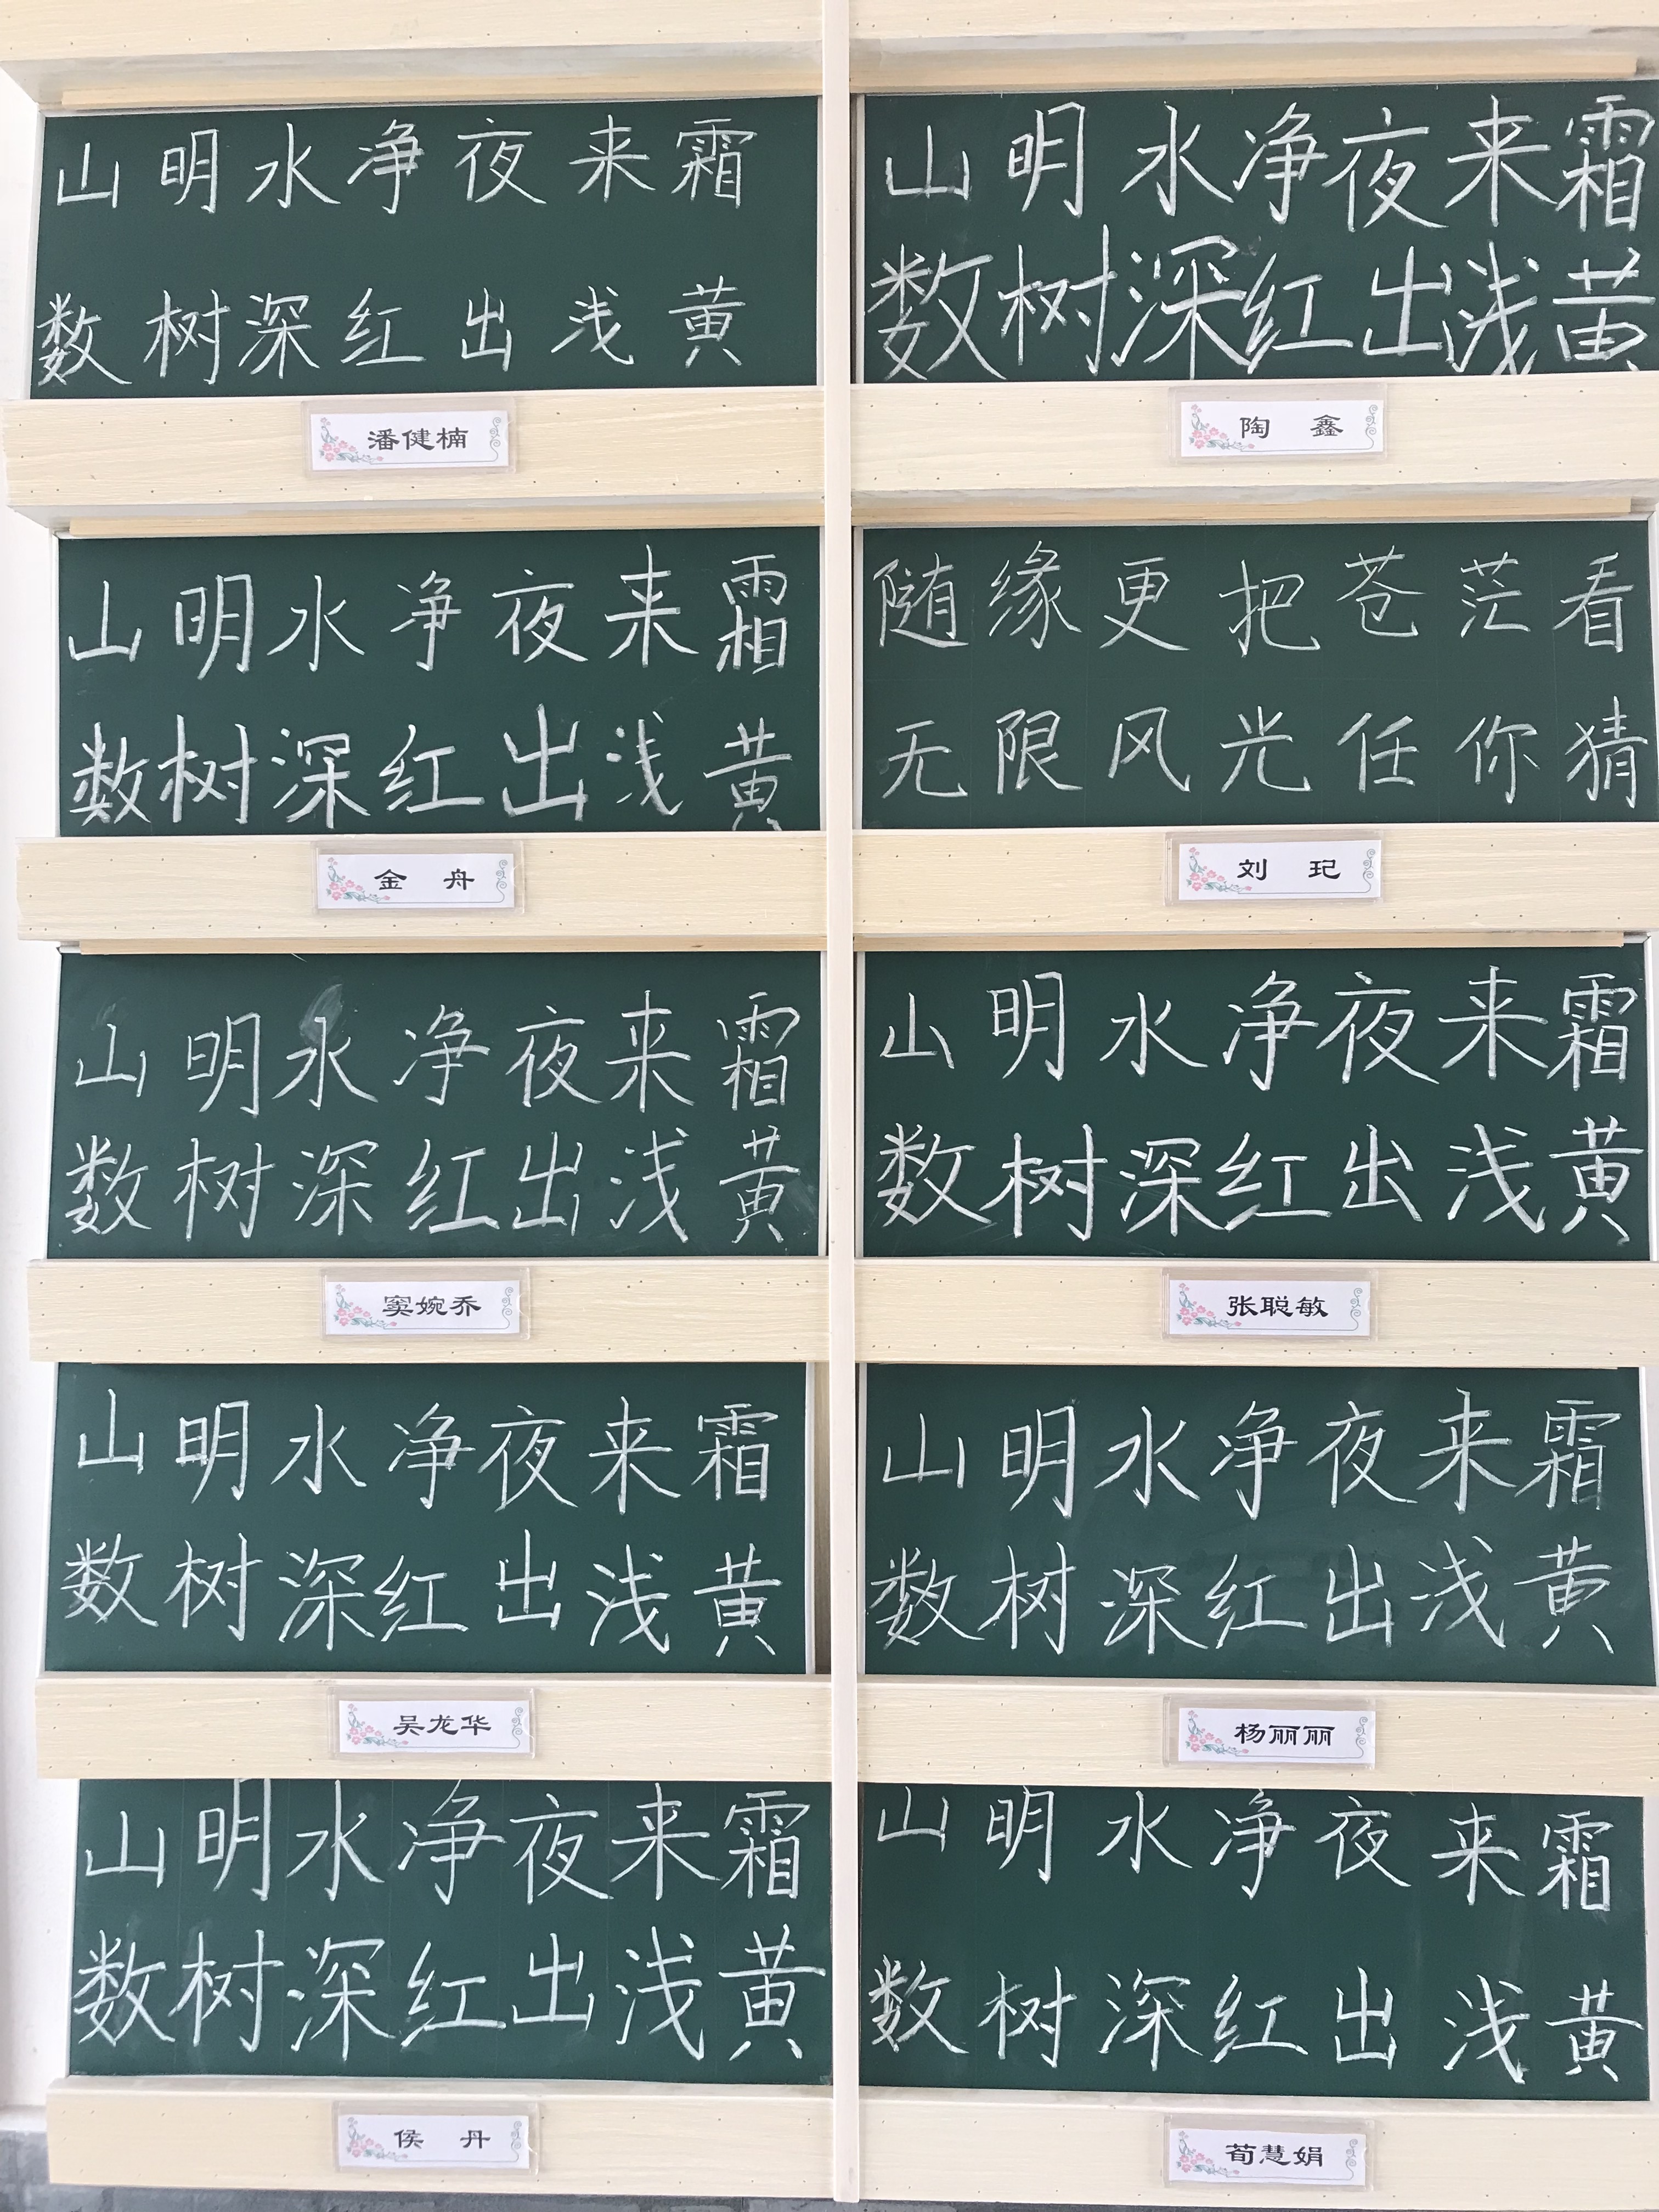 山明水净夜来霜
数树深红出浅黄
潘健楠
山明水净夜来霜
数树深红出浅黄
陶 鑫
山明水净夜来霜
数树深红出浅黄
金 舟
随缘更把苍茫看
无限风光任你猜
刘 玘
山明水净夜来霜
数树深红出浅黄
窦婉乔
山明水净夜来霜
数树深红出浅黄
张聪敏
山明水净夜来霜
数树深红出浅黄
吴龙华
山明水净夜来霜
数树深红出浅黄
杨丽丽
山明水净夜来霜
数树深红出浅黄
侯 丹
山明水净夜来霜
数树深红出浅黄
荀慧娟